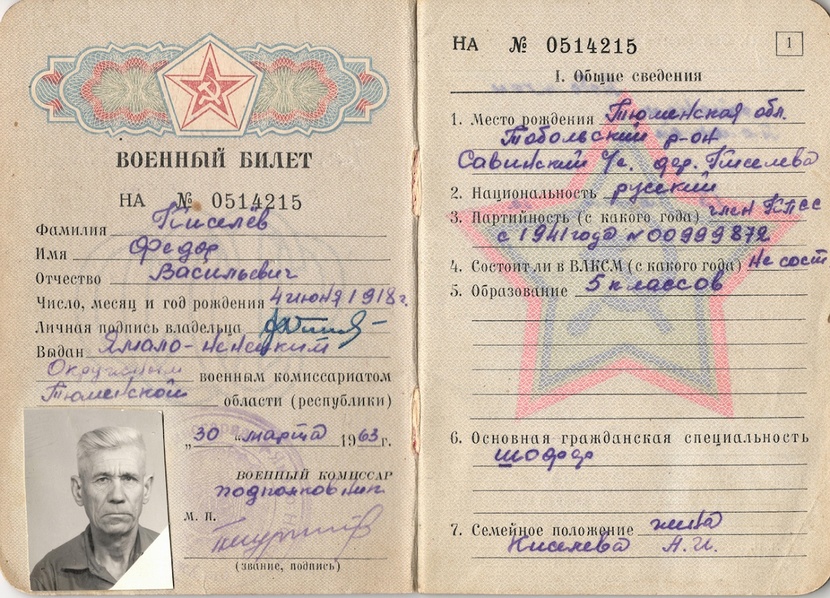 ВОЕННЫЙ БИЛЕТ
НА № 0514215
Фамилия Киселёв
Имя Федор
Отчество Васильевич
Число, месяц и год рождения 4 июня 1918 г.
Личная подпись владельца
Выдан Ямало-Ненецким
Окружным военным комиссариатом
Тюменской области (республики)
„30 " марта 1963 г.
ВОЕННЫЙ КОМИССАР
подполковник
М. П.
(звание, подпись)
НА № 0514215
1
I. Общие сведения
1. Место рождения Тюменская обл.
Тобольский р-он
Савинский с/с. дер. Киселева
2. Национальность русский
3. Партийность (с какого года) член КПСС
с 1941 года № 00999872
4. Состоит ли в ВЛКСМ (с какого года) Не сост
5. Образование 5 классов
6. Основная гражданская специальность
шофер
7. Семейное положение жена
Киселева А.И.